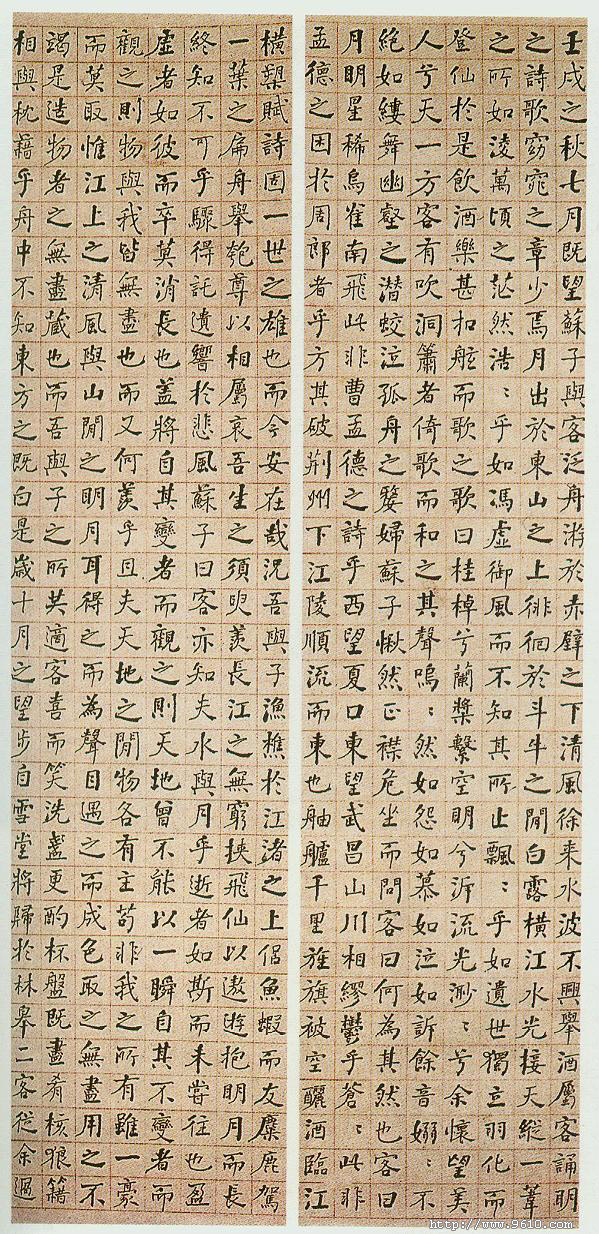 壬戌之秋七月既望蘇子與客泛舟游於赤壁之下清風徐来水波不興舉酒屬客誦明
之詩歌窈窕之章少焉月出於東山之上徘徊於斗牛之間白露橫江水光接天縱一葦
之所如淩萬頃之茫然浩〻乎如馮虛御風而不知其所止飄〻乎如遺世獨立羽化而
登仙於是飲酒樂甚扣舷而歌之歌曰桂棹兮蘭槳繫空明兮泝流光渺〻兮余懷望美
人兮天一方客有吹洞簫者倚歌而和之其聲嗚〻然如怨如慕如泣如訴餘音嫋〻不
絕如縷舞幽壑之潛蛟泣孤舟之嫠婦蘇子愀然正襟危坐而問客曰何為其然也客曰
月明星稀烏雀南飛此非曹孟德之詩乎西望夏口東望武昌山川相繆鬱乎蒼〻此非
孟德之困於周郎者乎方其破荊州下江陵順流而東也舳艫千里旌旗被空釃酒臨江
橫槊賦詩固一世之雄也而今安在哉況吾與子漁樵於江渚之上侶魚蝦而友麋鹿駕
一葉之扁舟舉匏尊以相屬哀吾生之須臾羨長江之無窮挾飛仙以遨遊抱明月而長
終知不可乎驟得託遺響於悲風蘇子曰客亦知夫水與月乎逝者如斯而未嘗往也盈
虛者如彼而卒莫消長也蓋將自其變者而觀之則天地曾不能以一瞬自其不變者而
觀之則物與我皆無盡也而又何羨乎且夫天地之間物各有主苟非我之所有雖一豪
而莫取惟江上之清風與山間之明月耳得之而為聲目遇之而成色取之無盡用之不
竭是造物者之無盡藏也而吾與子之所共適客喜而笑洗盞更酌杯盤既盡肴核狼籍
相與枕藉乎舟中不知東方之既白是歲十月之望步自雪堂將歸於林皋二客從余過
http://www.9610.com